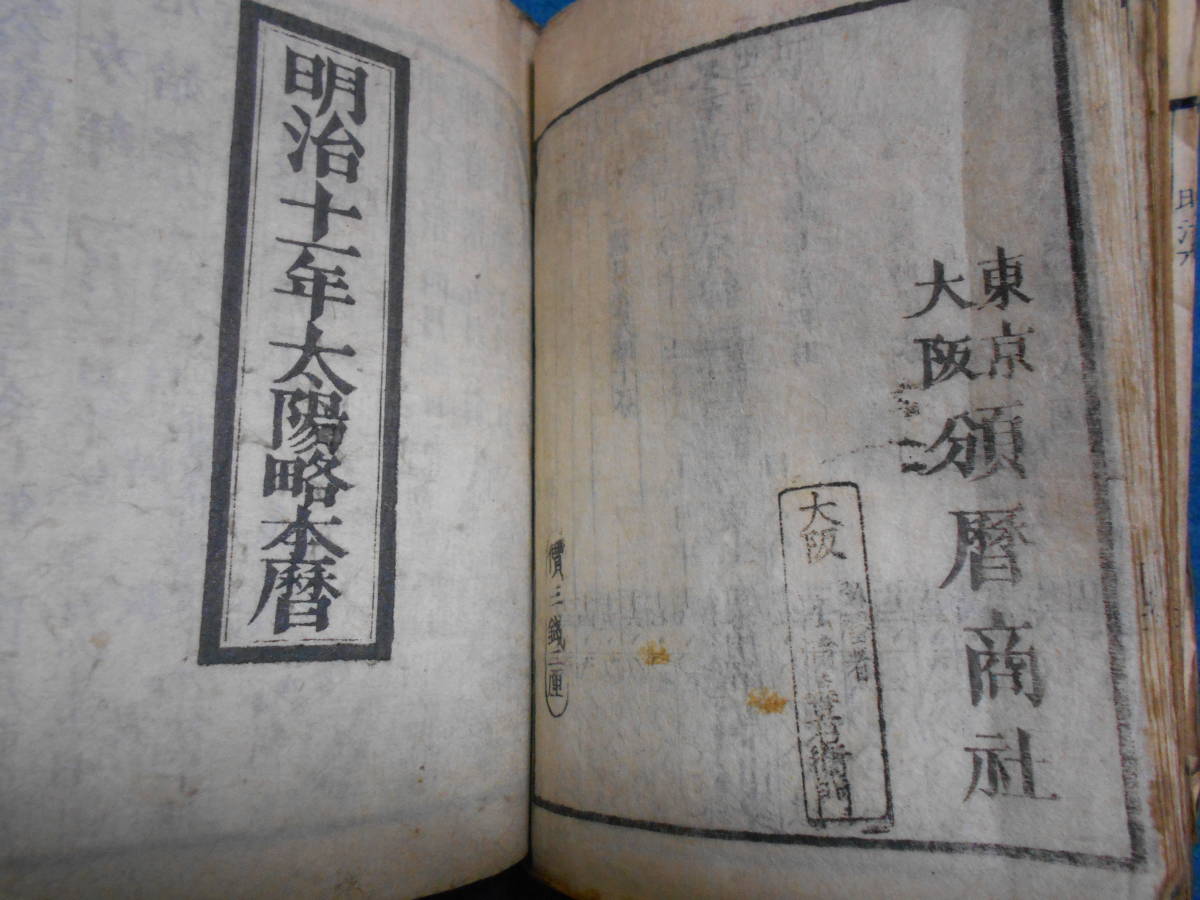 東京
大阪
頒暦商社
大阪
弘
衛門
價三錢二厘
明治十一年太陽略本暦
明治